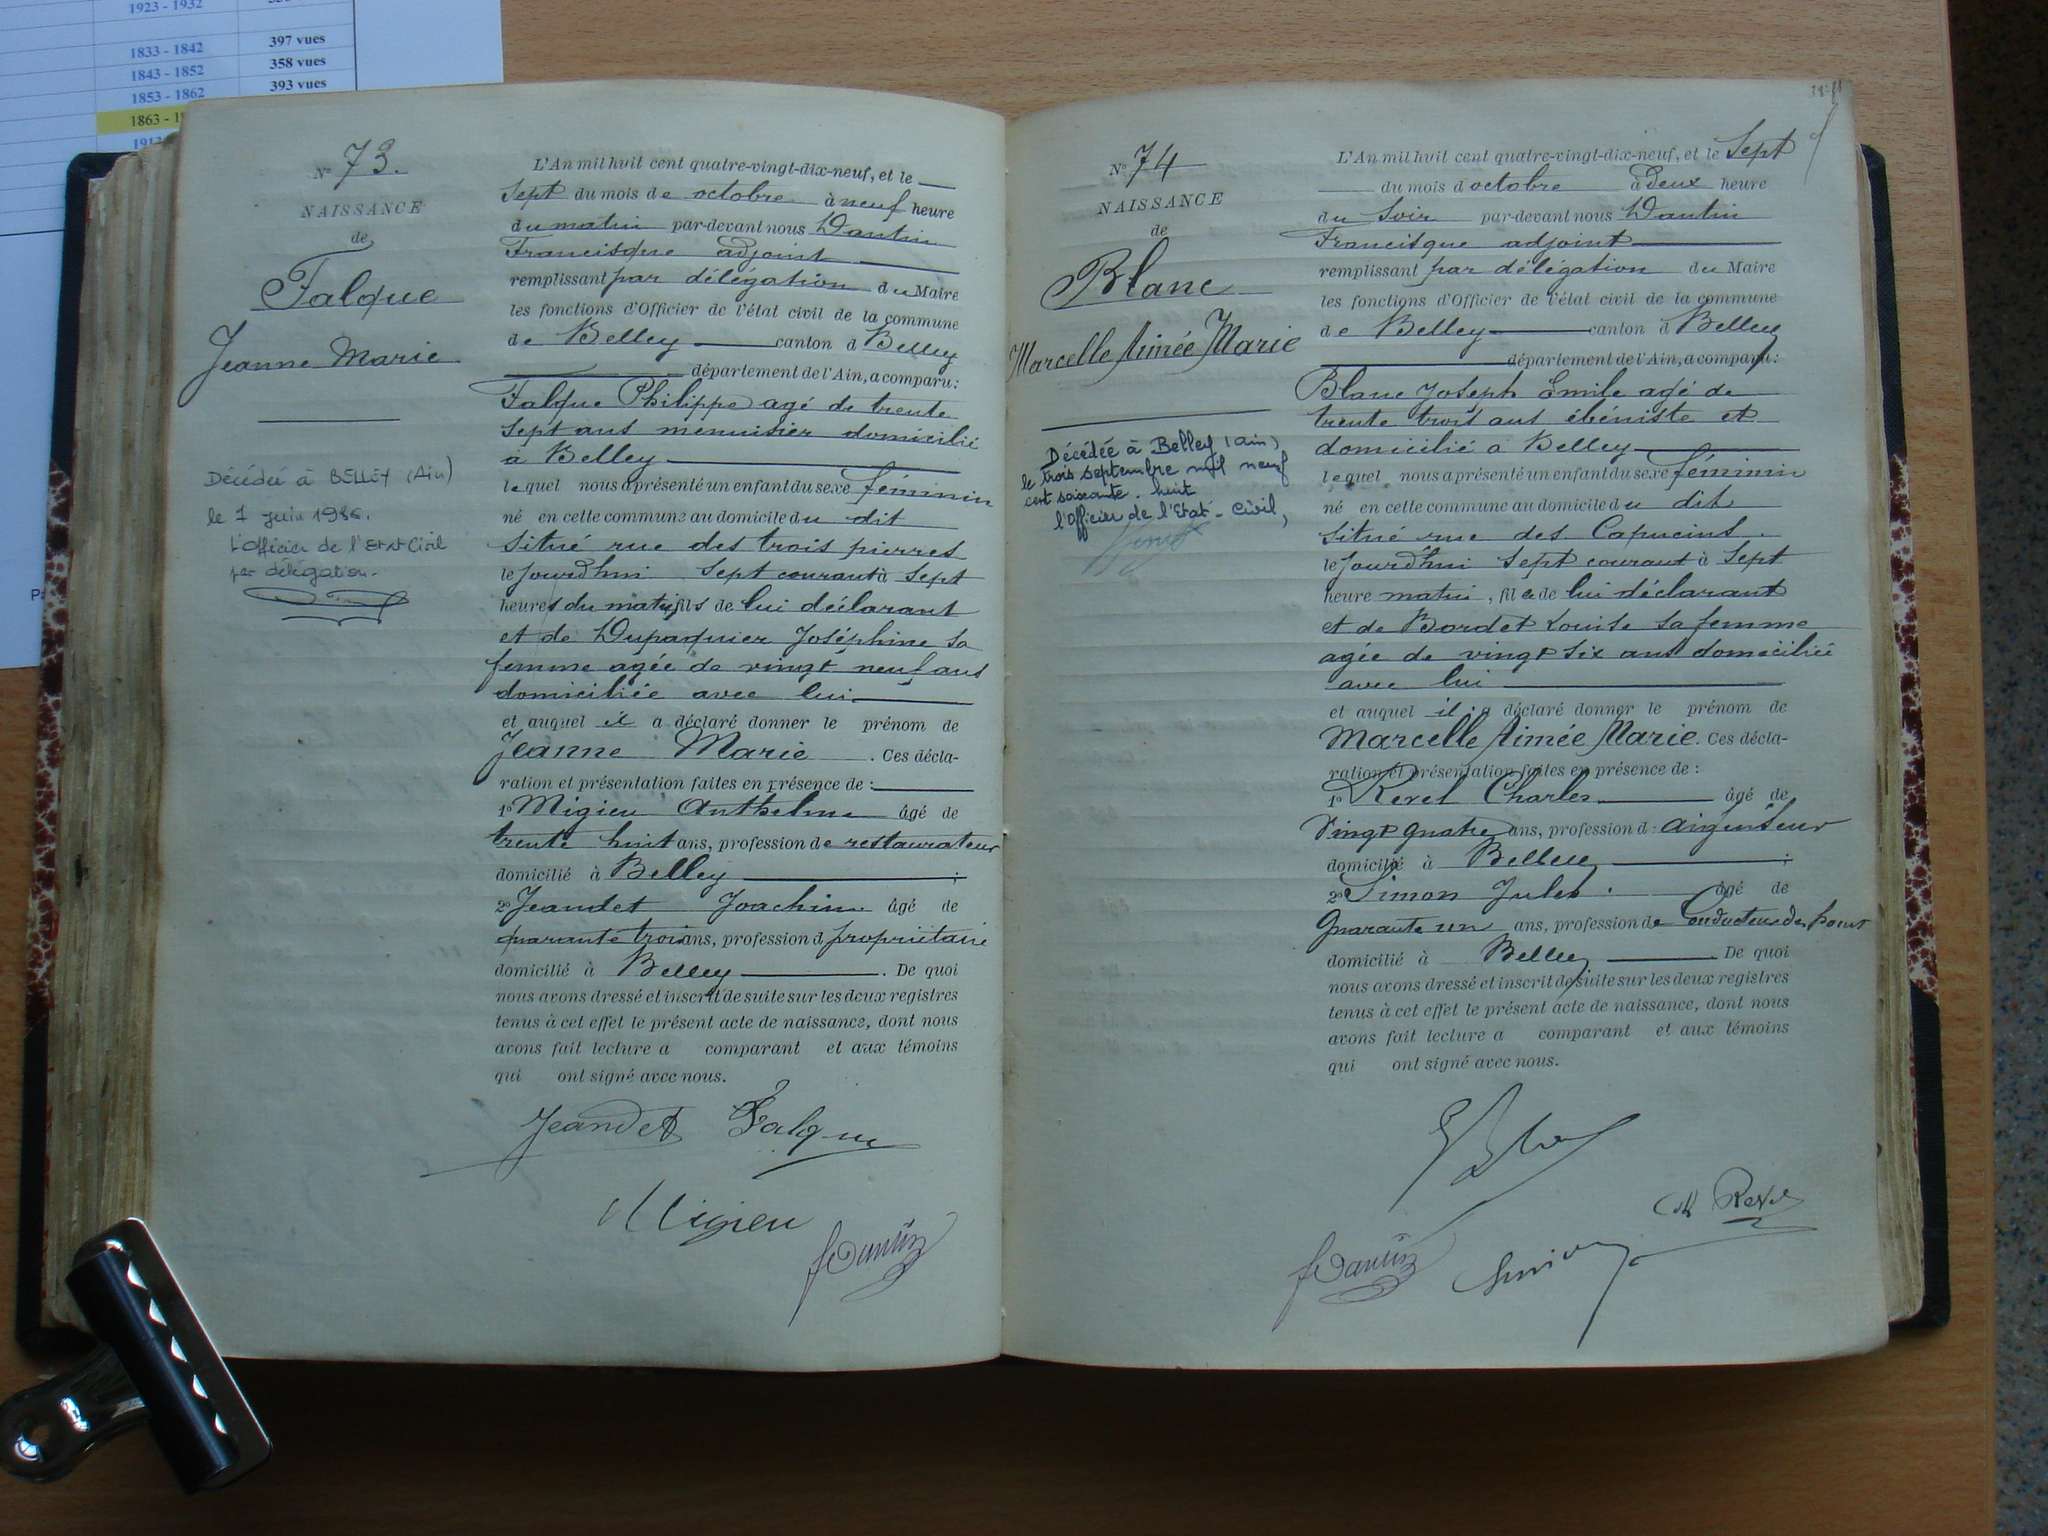 1923 - 1932
1833 - 1842 397 vues
1843 - 1852 358 vues
1853 - 1862 393 vues
1863 -
N° 73.
NAISSANCE
de
Falque
Jeanne Marie
Décédée à BELLEY (Ain)
le 1 Juin 1986.
L'Officier de l'Etat Civil
par délégation.
L'An mil huit cent quatre-vingt-dix-neuf, et le
Sept du mois de octobre à neuf heure
du matin par-devant nous Dantin
Francisque adjoint
remplissant par délégation du Maire
les fonctions d'Officier de l'état civil de la commune
de Belley canton d Belley
département de l'Ain, a comparu:
Falque Philippe agé de trente
Sept ans menuisier domicilié
à Belley
lequel nous a présenté un enfant du sexe féminin
né en cette commune au domicile du dit
Situé rue des trois pierres
le jourd'hui Sept courant à Sept
heures du matin, fils de lui déclarant
et de Dupasquier Joséphine sa
femme agée de vingt neuf ans
domiciliée avec lui
et auquel il a déclaré donner le prénom de
Jeanne Marie. Ces décla-
ration et présentation faites en présence de:
1° Migieu Anthelme âgé de
trente huit ans, profession de restaurateur
domicilié à Belley;
2° Jeandet Joachim âgé de
quarante trois ans, profession d propriétaire
domicilié à Belley. De quoi
nous avons dressé et inscrit de suite sur les deux registres
tenus à cet effet le présent acte de naissance, dont nous
avons fait lecture a comparant et aux témoins
qui ont signé avec nous.
Jeandet Falque
Migieu
f Dantin
N° 74
NAISSANCE
de
Blanc
Marcelle Aimée Marie
Décédée à Belley (Ain)
le trois septembre mil neuf
cent soixante-huit
l'Officier de l'Etat-Civil,
L'An mil huit cent quatre-vingt-dix-neuf, et le Sept
du mois d octobre à deux heure
du Soir par-devant nous Dantin
Francisque adjoint
remplissant par délégation du Maire
les fonctions d'Officier de l'état civil de la commune
de Belley canton d Belley
département de l'Ain, a comparu:
Blanc Joseph Emile agé de
trente trois ans ébéniste et
domicilié à Belley
lequel nous a présenté un enfant du sexe féminin
né en cette commune au domicile du dit
Situé rue des Capucins.
le jourd'hui Sept courant à Sept
heure matin, fille de lui déclarant
et de Bordet Louise sa femme
agée de vingt Six ans domiciliée
avec lui
et auquel il a déclaré donner le prénom de
Marcelle Aimée Marie. Ces décla-
ration et présentation faites en présence de:
1° Revel Charles âgé de
Vingt quatre ans, profession d: aiguiseur
domicilié à Belley;
2° Simon Jules âgé de
Quarante un ans, profession de Conducteur des ponts
domicilié à Belley. De quoi
nous avons dressé et inscrit de suite sur les deux registres
tenus à cet effet le présent acte de naissance, dont nous
avons fait lecture a comparant et aux témoins
qui ont signé avec nous.
Ch Revel
f Dantin Simon